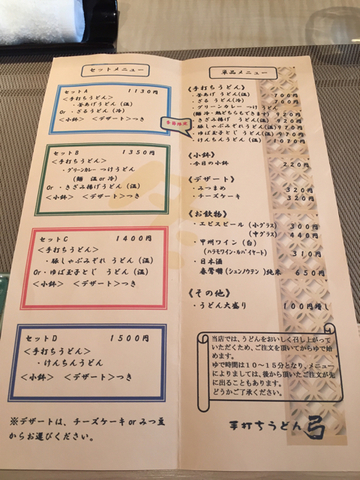 セットメニュー
セットA　1130円
＜手打ちうどん＞
・釜あげうどん（温）
Or・ざるうどん（冷）
＜小鉢＞　＜デザート＞つき
セットB　1350円
＜手打ちうどん＞
・グリーンカレーつけうどん
（麺　温or冷）
Or・きざみ揚げうどん（温）
＜小鉢＞　＜デザート＞つき
セットC　1400円
＜手打ちうどん＞
・豚しゃぶみぞれうどん（温）
Or・ゆば玉子とじうどん（温）
＜小鉢＞　＜デザート＞つき
セットD　1500円
＜手打ちうどん＞
・けんちんうどん
＜小鉢＞　＜デザート＞つき
※デザートは、チーズケーキorみつ豆
からお選びください。
単品メニュー
＜手打ちうどん＞
・釜あげうどん（温）
・ざるうどん（冷）
・グリーンカレーつけうどん
（麺　冷・熱どちらもできます）
・きざみ揚げうどん（温）
・豚しゃぶみぞれうどん（温）
・ゆば玉子とじうどん（温）
・けんちんうどん
＜小鉢＞
・本日の小鉢　220円
＜デザート＞
・みつまめ　320円
・チーズケーキ　320円
＜お飲物＞
・エビスビール（小グラス）300円
（中グラス）440円
・甲州ワイン（白）
（ハラモワイン・ルバイヤート）310円
・日本酒
春鶯囀（シュンノウテン）純米　650円
＜その他＞
・うどん大盛り　100円増し
当店では、うどんをおいしく召し上がって
いただくため、ご注文を頂いてからゆで始
めます。
ゆで時間は10～15分となり、メニュー
によりましては、後から頂いたご注文が先
に出ることもあります。
どうかご了承ください。
手打ちうどん　弓